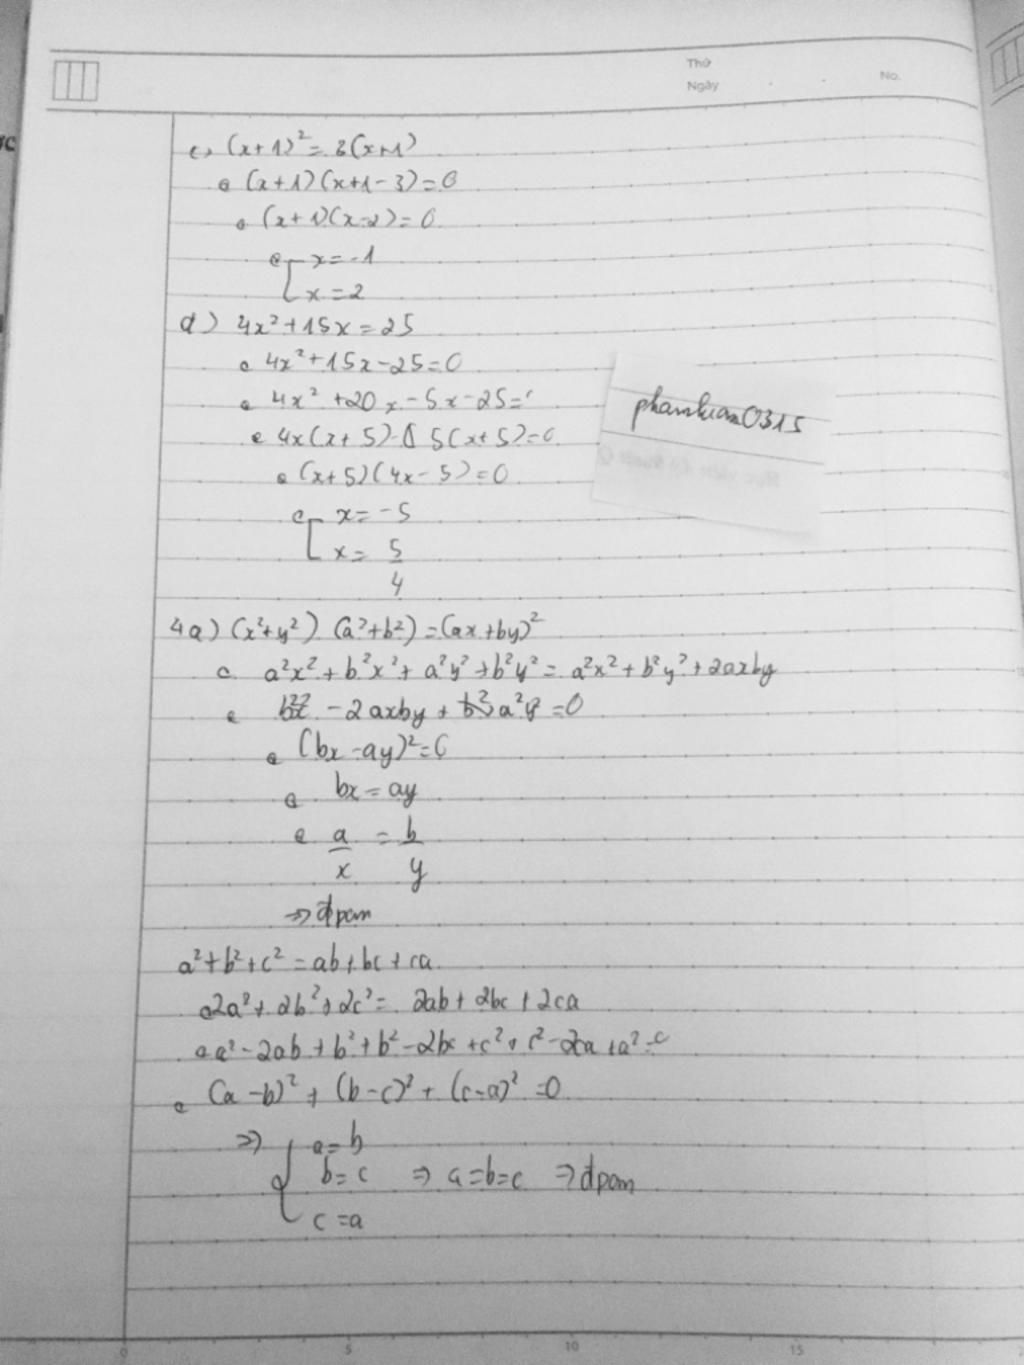 Thứ
Ngày
No.
c, (x+1)² = 3(x+1)
⇔ (x+1)(x+1-3)=0
⇔ (x+1)(x-2)=0
⇔ [ x=-1
x=2
d) 4x²+15x=25
⇔ 4x²+15x-25=0
⇔ 4x²+20x-5x-25=0
⇔ 4x(x+5)-5(x+5)=0
⇔ (x+5)(4x-5)=0
⇔ [ x=-5
x=5/4
4a) (x²+y²)(a²+b²)=(ax+by)²
⇔ a²x²+b²x²+a²y²+b²y²=a²x²+b²y²+2axby
⇔ b²x²-2axby+a²y²=0
⇔ (bx-ay)²=0
⇔ bx=ay
⇔ a/x = b/y
⇒ đpcm
a²+b²+c²=ab+bc+ca
⇔ 2a²+2b²+2c²=2ab+2bc+2ca
⇔ a²-2ab+b²+b²-2bc+c²+c²-2ca+a²=0
⇔ (a-b)²+(b-c)²+(c-a)²=0
⇒ { a=b
b=c ⇒ a=b=c ⇒ đpcm
c=a
0 5 10 15